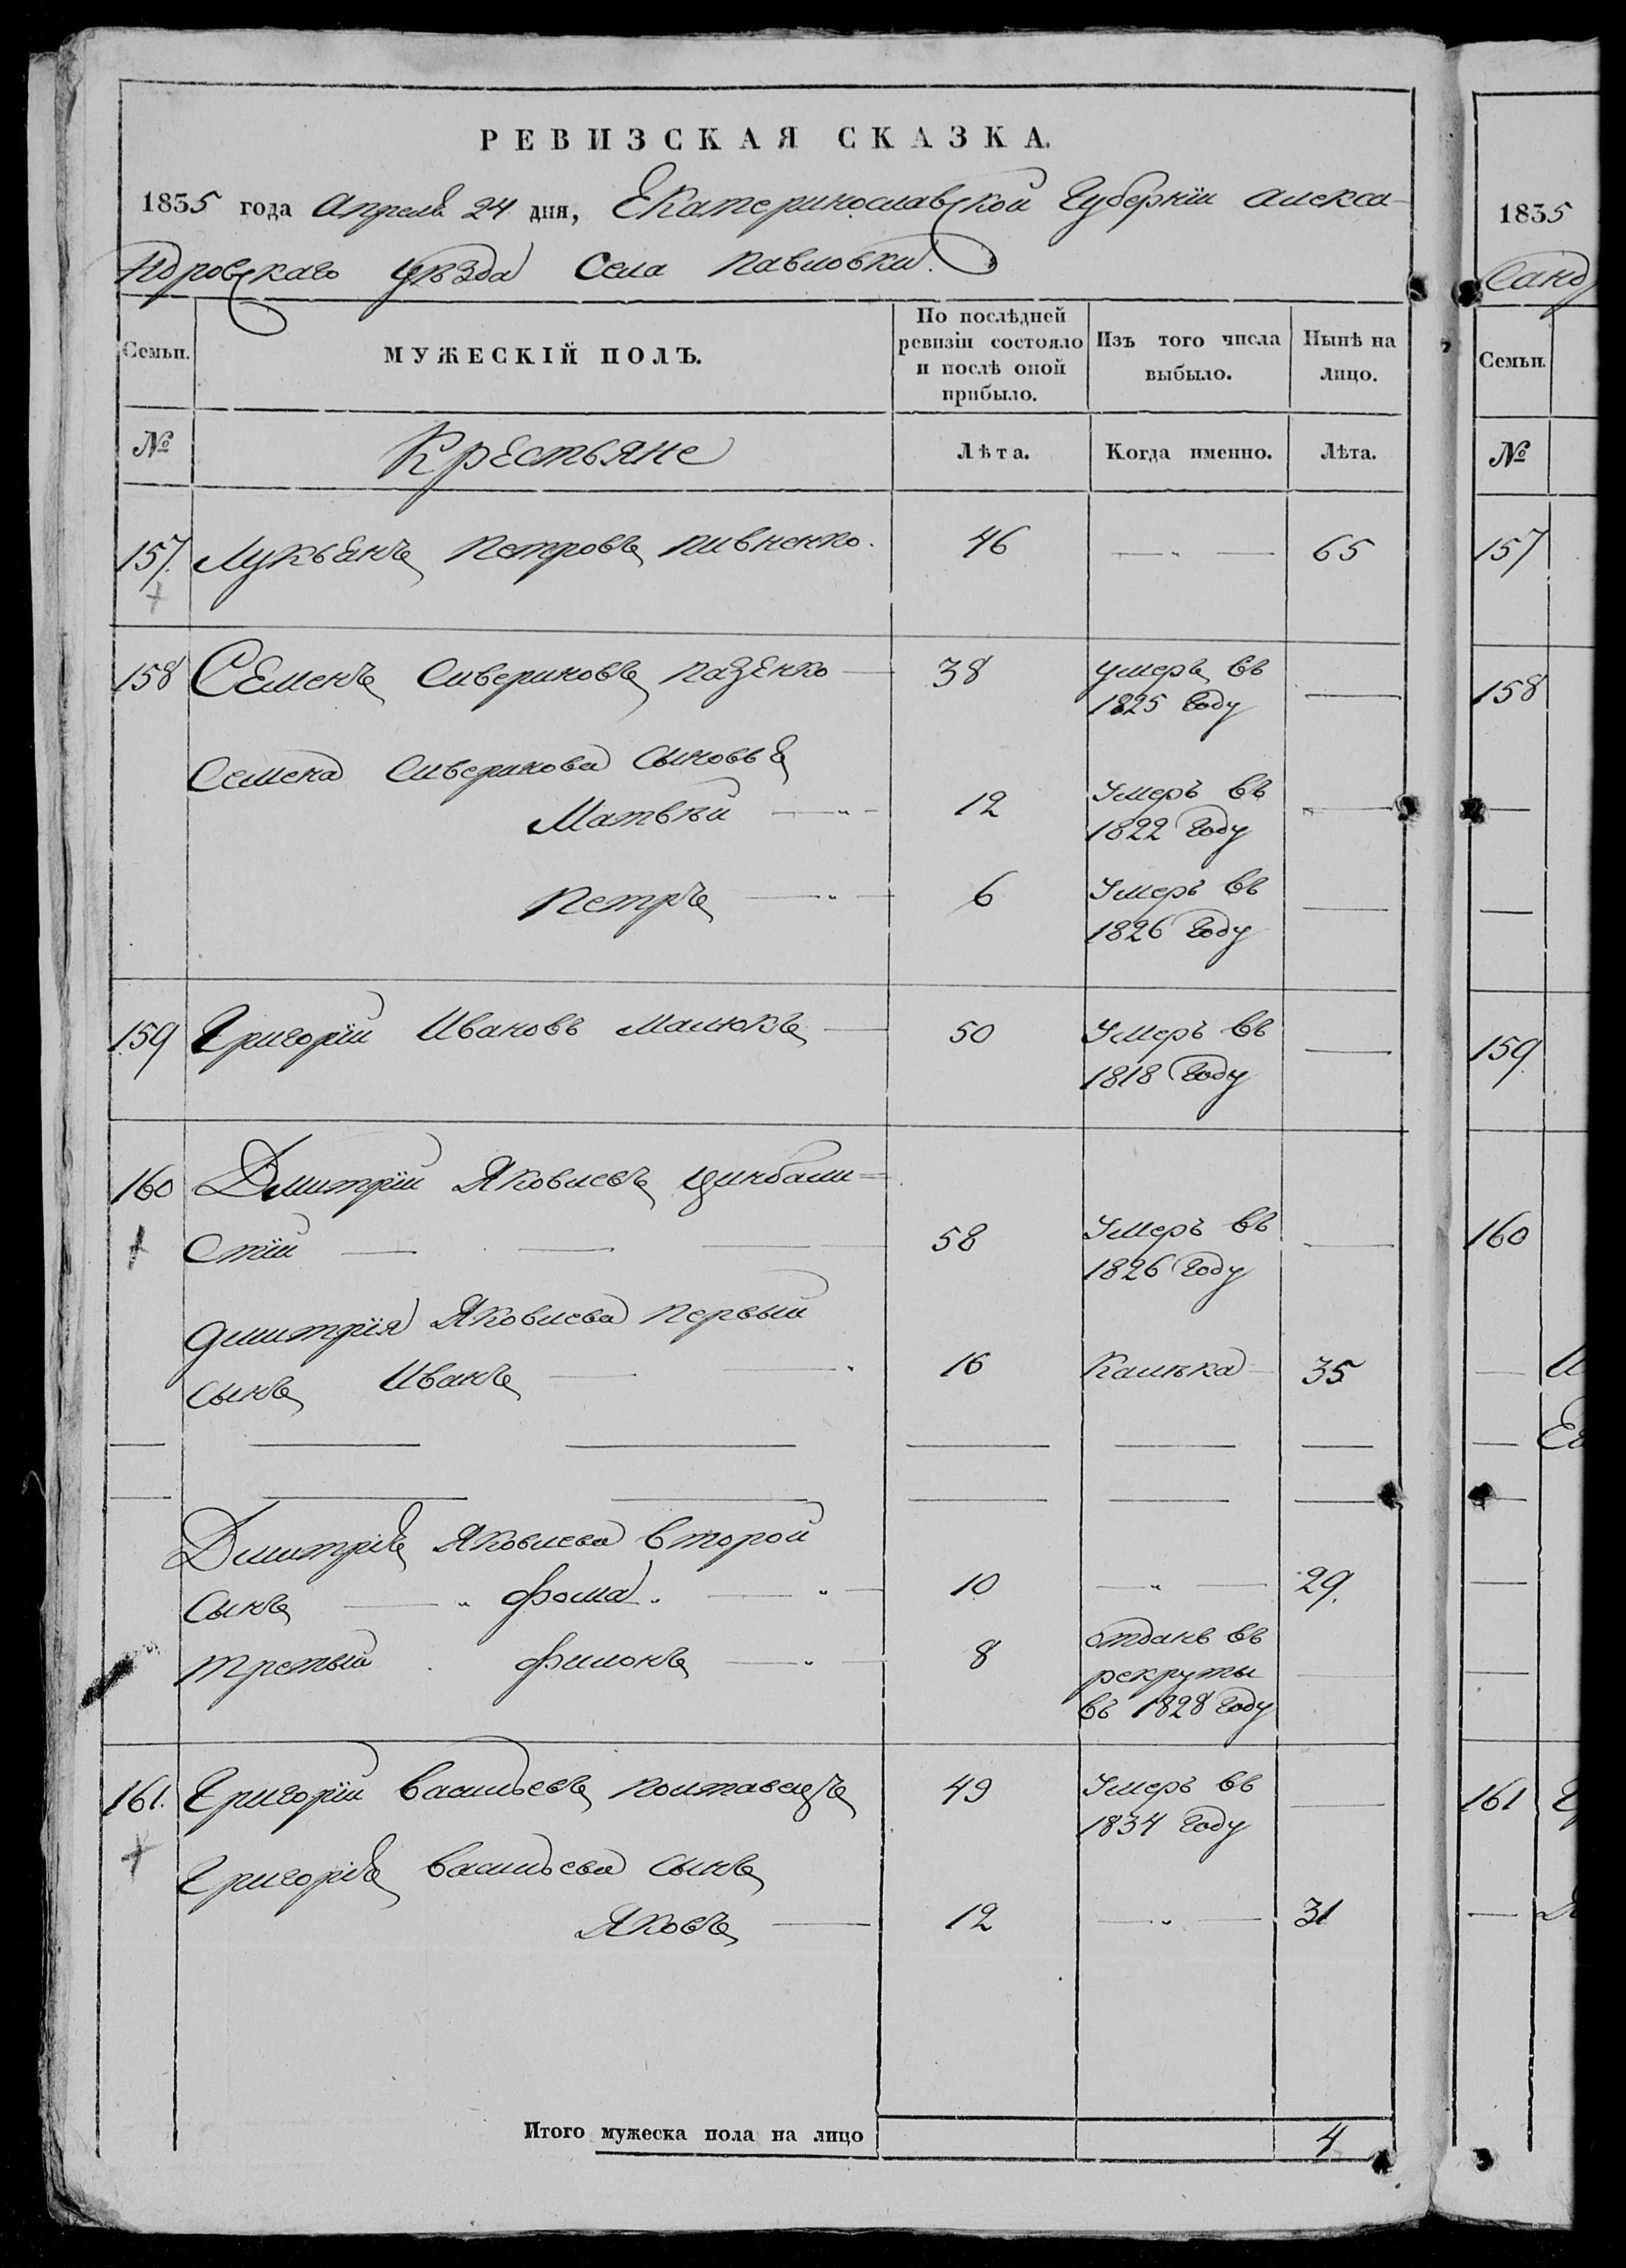 РЕВИЗСКАЯ СКАЗКА.
1835 года Апреля 24 дня, Екатеринославской Губернїи Алекса-
ндровскаго уѣзда Села Павловки.
Семьи.
МУЖЕСКІЙ ПОЛЪ.
По послѣдней ревизіи состояло и послѣ оной прибыло.
Изъ того числа выбыло.
Нынѣ на лицо.
№ Крестьяне Лѣта. Когда именно. Лѣта.
157. Лукьянъ Петровъ Пивненко. 46 — „ — 65
158 Семенъ Сивериновъ Пазенко — 38 умеръ въ 1825 году —
Семена Сиверинова Сыновья
Матвѣй — „ — 12 Умеръ въ 1822 году —
Петръ — „ — 6 Умеръ въ 1826 году —
159 Григорїй Ивановъ Малюкъ — 50 Умеръ въ 1818 году —
160 Дмитрїй Яковлевъ Цинбали=
Стїй — — — 58 Умеръ въ 1826 году —
Дмитрїя Яковлева первый
Сынъ Иванъ — — 16 Калѣка 35
Дмитрія Яковлева Второй
Сынъ — „ Фома. — „ — 10 — „ — 29.
Третьий Филонъ — „ — 8 отданъ въ рекруты въ 1828 году —
161. Григорїй Васильевъ Полтавецъ 49 Умеръ въ 1834 году —
Григорія Васильева Сынъ
Яковъ — 12 — „ — 31
Итого мужеска пола на лицо 4
1835
Санд
Семьи.
№
157
158
159
160
161